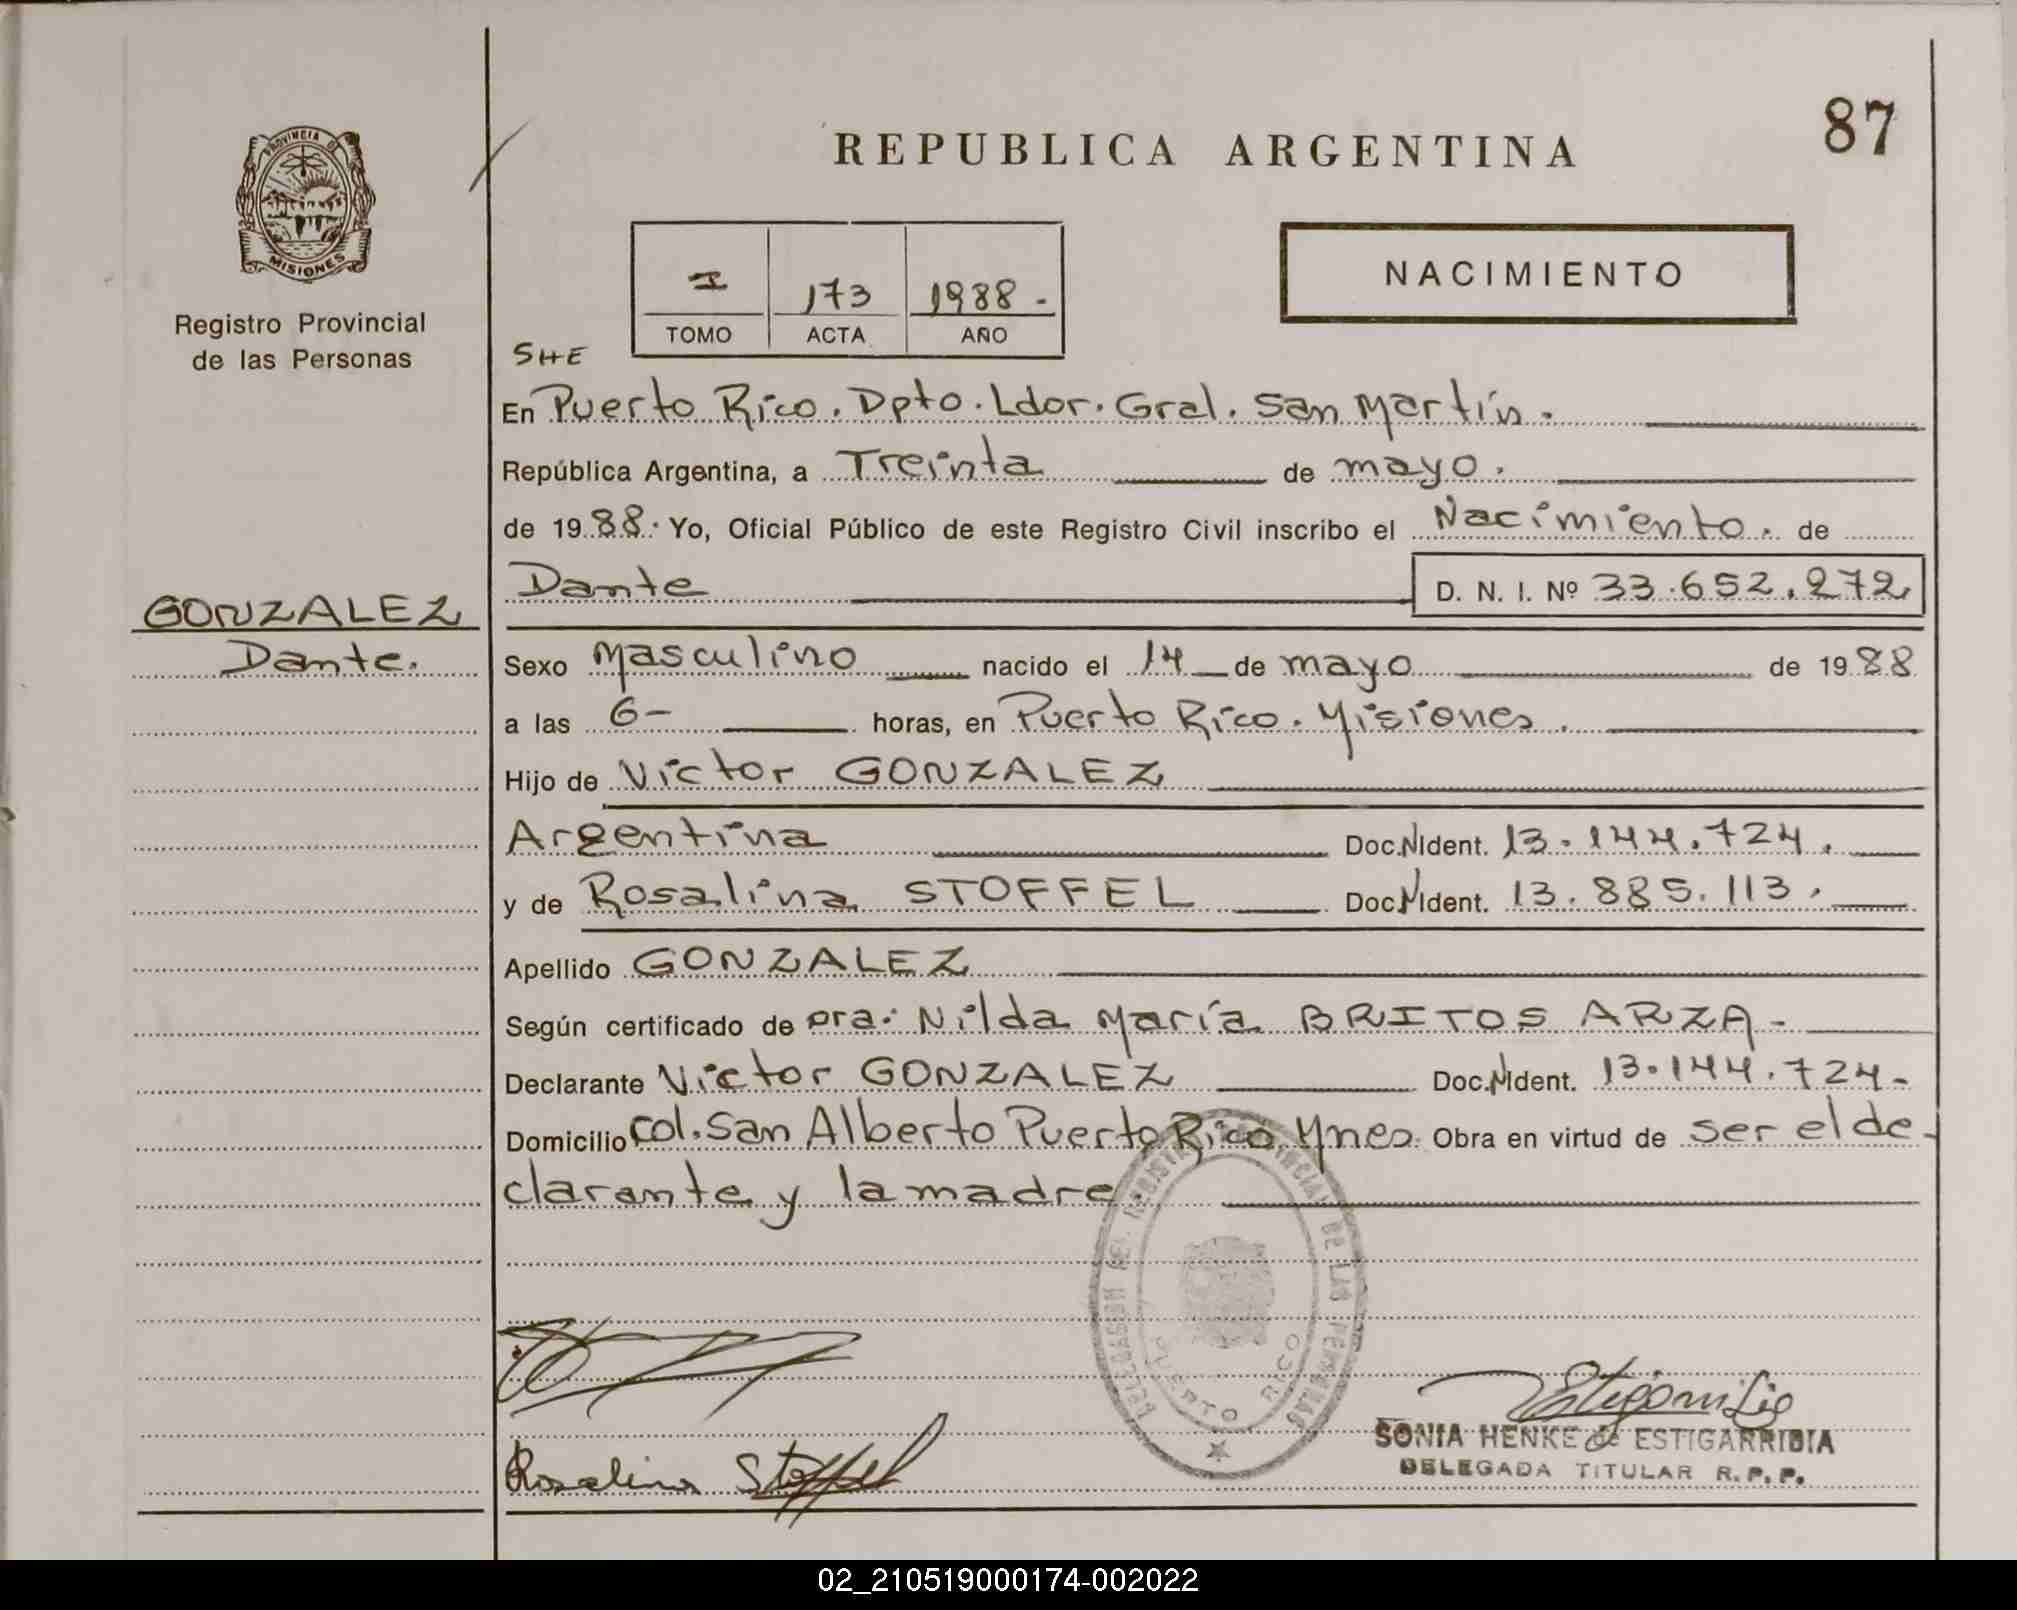 87
REPUBLICA ARGENTINA
PROVINCIA DE
MISIONES
Registro Provincial
de las Personas
I 173 1988.-
TOMO ACTA AÑO
NACIMIENTO
SHE
En Puerto Rico. Dpto. Ldor. Gral. San Martín.
República Argentina, a Treinta de mayo.
de 1988. Yo, Oficial Público de este Registro Civil inscribo el Nacimiento. de
Dante D. N. I. Nº 33.652.272
GONZALEZ
Dante.
Sexo Masculino nacido el 14 de mayo de 1988
a las 6- horas, en Puerto Rico. Misiones.
Hijo de Victor GONZALEZ
Argentina Doc.NIdent. 13.144.724.
y de Rosalina STOFFEL Doc.NIdent. 13.885.113.
Apellido GONZALEZ
Según certificado de Dra. Nilda María BRITOS ARZA-
Declarante Victor GONZALEZ Doc.NIdent. 13.144.724-
Domicilio Col. San Alberto Puerto Rico Mnes. Obra en virtud de ser el de-
clarante y la madre.
DELEGACION DEL REGISTRO PROVINCIAL DE LAS PERSONAS
PUERTO RICO
Rosalina Stoffel
SONIA HENKE de ESTIGARRIBIA
DELEGADA TITULAR R.P.P.
02_210519000174-002022